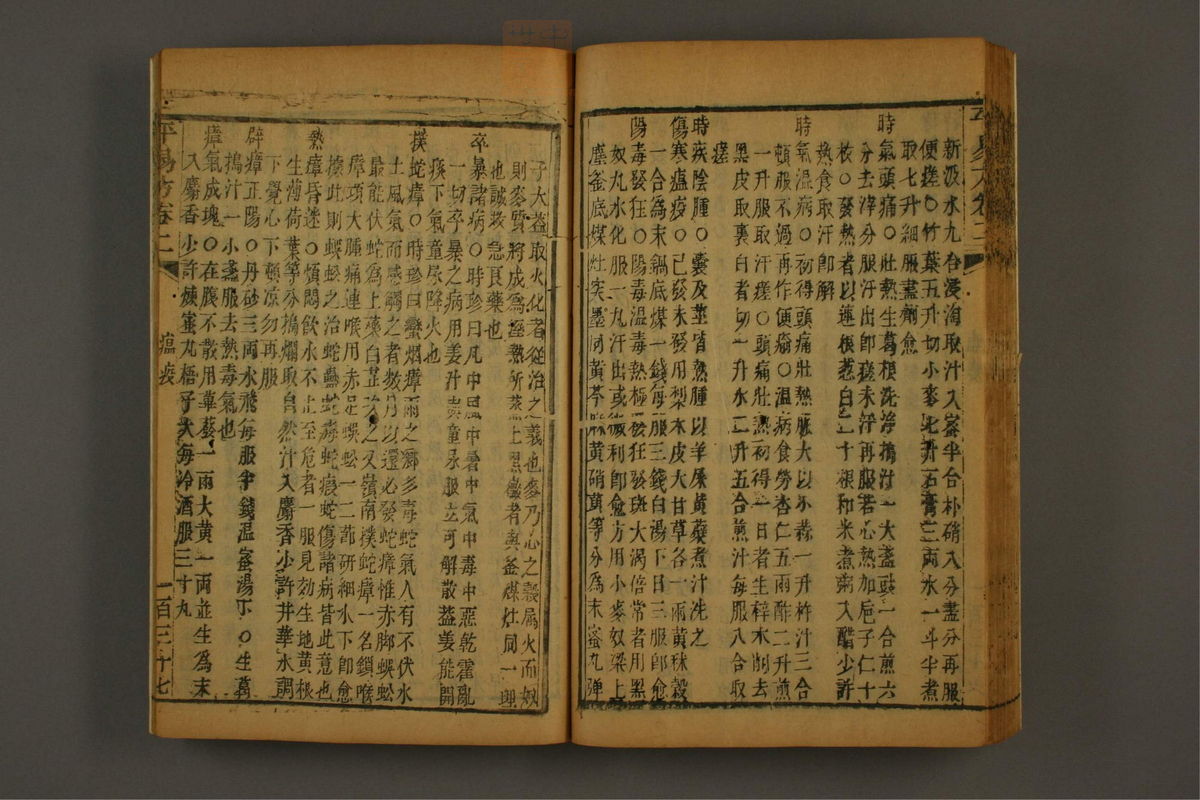 新汲水九合浸淘取汁入蜜半合朴硝入分盡分再服
便瘥○竹葉五升切小麥七升石膏三兩水一斗半煮
取七升細服盡劑愈
時氣頭痛○壯熱生葛根洗淨搗汁一大盞豉一合煎六
分去滓分服汗出即瘥未汗再服若心熱加梔子仁十
枚○發熱者以連根葱白二十根和米煮粥入醋少許
熱食取汗即解
時氣溫病○初得頭痛壯熱脈大以小蒜一升杵汁三合
頓服不過再作便瘥○溫病食勞杏仁五兩酢二升煎
一升服取汗瘥○頭痛壯熱初得一日者生梓木削去
黑皮取裏白者切一升水二升五合煎汁每服八合取
瘥
時疾陰腫○囊及莖皆熱腫以羊屎黃蘗煮汁洗之
傷寒瘟疫○已發未發用梨木皮大甘草各一兩黃秫穀
一合為末鍋底煤一錢每服三錢白湯下日三服即愈
陽毒發狂○陽毒溫毒熱極發狂發斑大渴倍常者用黑
奴丸水化服一丸汗出或微利即愈方用小麥奴梁上
塵釜底煤灶突墨同黃芩麻黃硝黃等分為末蜜丸彈
子大蓋取火化者從治之義也麥乃心之穀屬火而奴
則麥實將成為濕熱所蒸上黑黴者與釜煤灶同一理
也誠救急良藥也
卒暴諸病○時珍曰凡中風中暑中氣中毒中惡乾霍亂
一切卒暴之病用姜汁與童尿服立可解散蓋姜能開
痰下氣童尿降火也
撲蛇瘴○時珍曰蠻烟瘴雨之鄉多毒蛇氣人有不伏水
土風氣而感觸之者數月以還必發蛇瘴惟赤脚蜈蚣
最能伏蛇為上藥白芷次之又嶺南撲蛇瘴一名鎖喉
瘴項大腫痛連喉用赤足蜈蚣一二節研細水下即愈
據此則蜈蚣之治蠱蛇毒蛇瘕蛇傷諸病皆此意也
熱瘴昏迷○煩悶飲水不止至危者一服見効生地黃根
生薄荷葉等分搗爛取自然汁入麝香少許井華水調
下覺心下頓涼勿再服
辟瘴正陽○丹砂三兩水飛每服半錢温蜜湯下○生葛
搗汁一小盞服去熱毒氣也
瘴氣成塊○在腹不散用蓽茇一兩大黃一兩並生為末
入麝香少許煉蜜丸梧子大每冷酒服三十九
平易方卷二
瘟疫
一百三十七